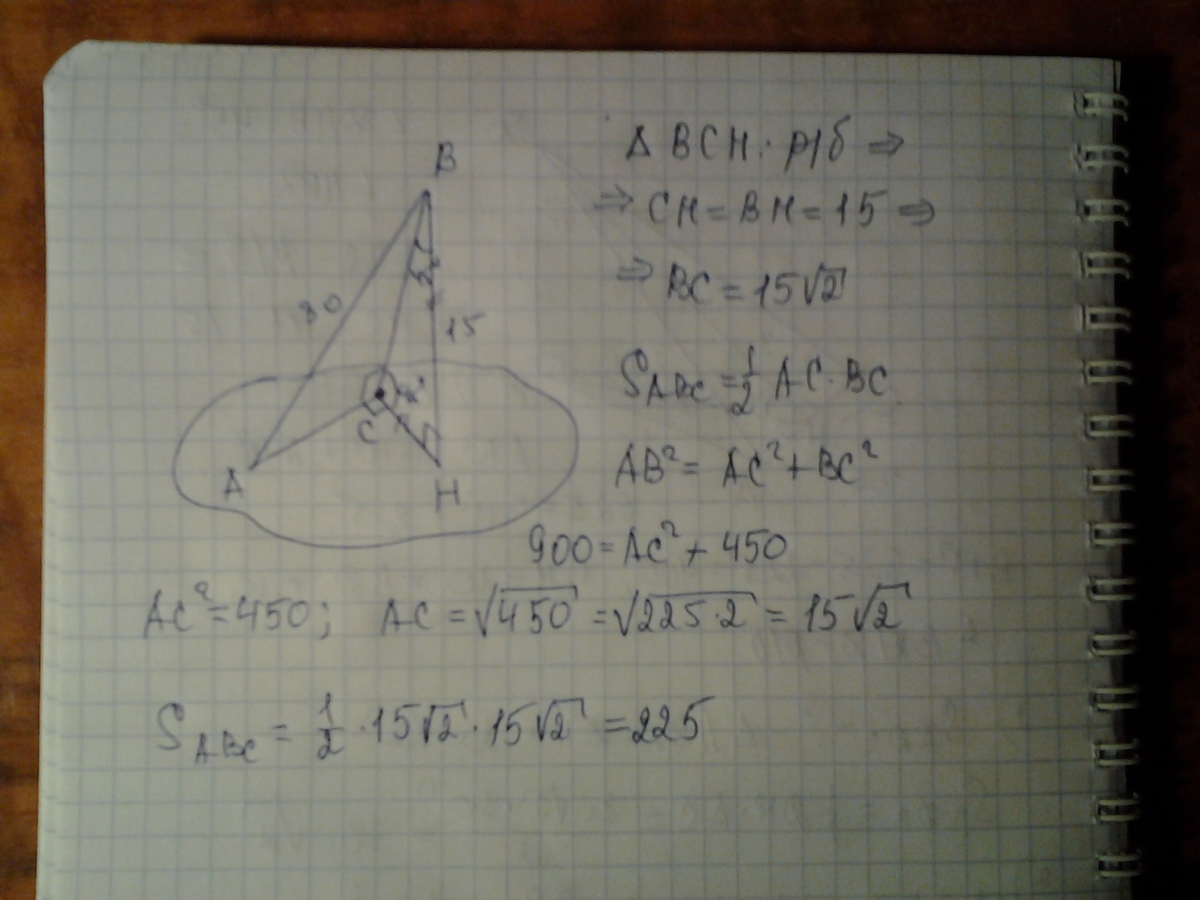 B
30
15
C
A
H
Δ BCH: р/б ⇒
⇒ CH = BH = 15 ⇒
⇒ BC = 15√2
S_ABC = 1/2 AC · BC
AB² = AC² + BC²
900 = AC² + 450
AC² = 450; AC = √450 = √225·2 = 15√2
S_ABC = 1/2 · 15√2 · 15√2 = 225